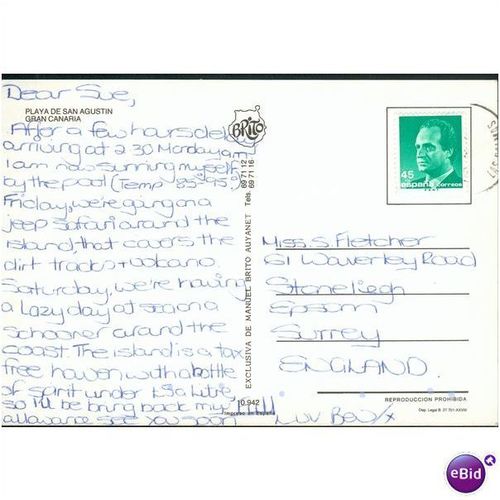 Dear Sue,
PLAYA DE SAN AGUSTIN
GRAN CANARIA
After a few hours delay
arriving at 2.30 Monday am
I am now sunning myself
by the pool (Temp 85°-95°)
Friday, we're going on a
jeep safari around the
island, that covers the
dirt tracks + volcano.
Saturday, we're having
a lazy day at sea on a
schooner around the
coast. The island is a tax
free haven with a bottle
of spirit under £3 a litre,
so I'll be bring back my
allowance see you soon
Luv Bev x
BRITO
EXCLUSIVA DE MANUEL BRITO AUYANET
Tels. 69 71 12
69 71 16
0.942
Impreso en España
45
españa correos
Miss. S. Fletcher
61 Waverley Road
Stoneleigh
Epsom
Surrey
ENGLAND.
REPRODUCCION PROHIBIDA
Dep. Legal B. 21.701-XXVIII
eBid